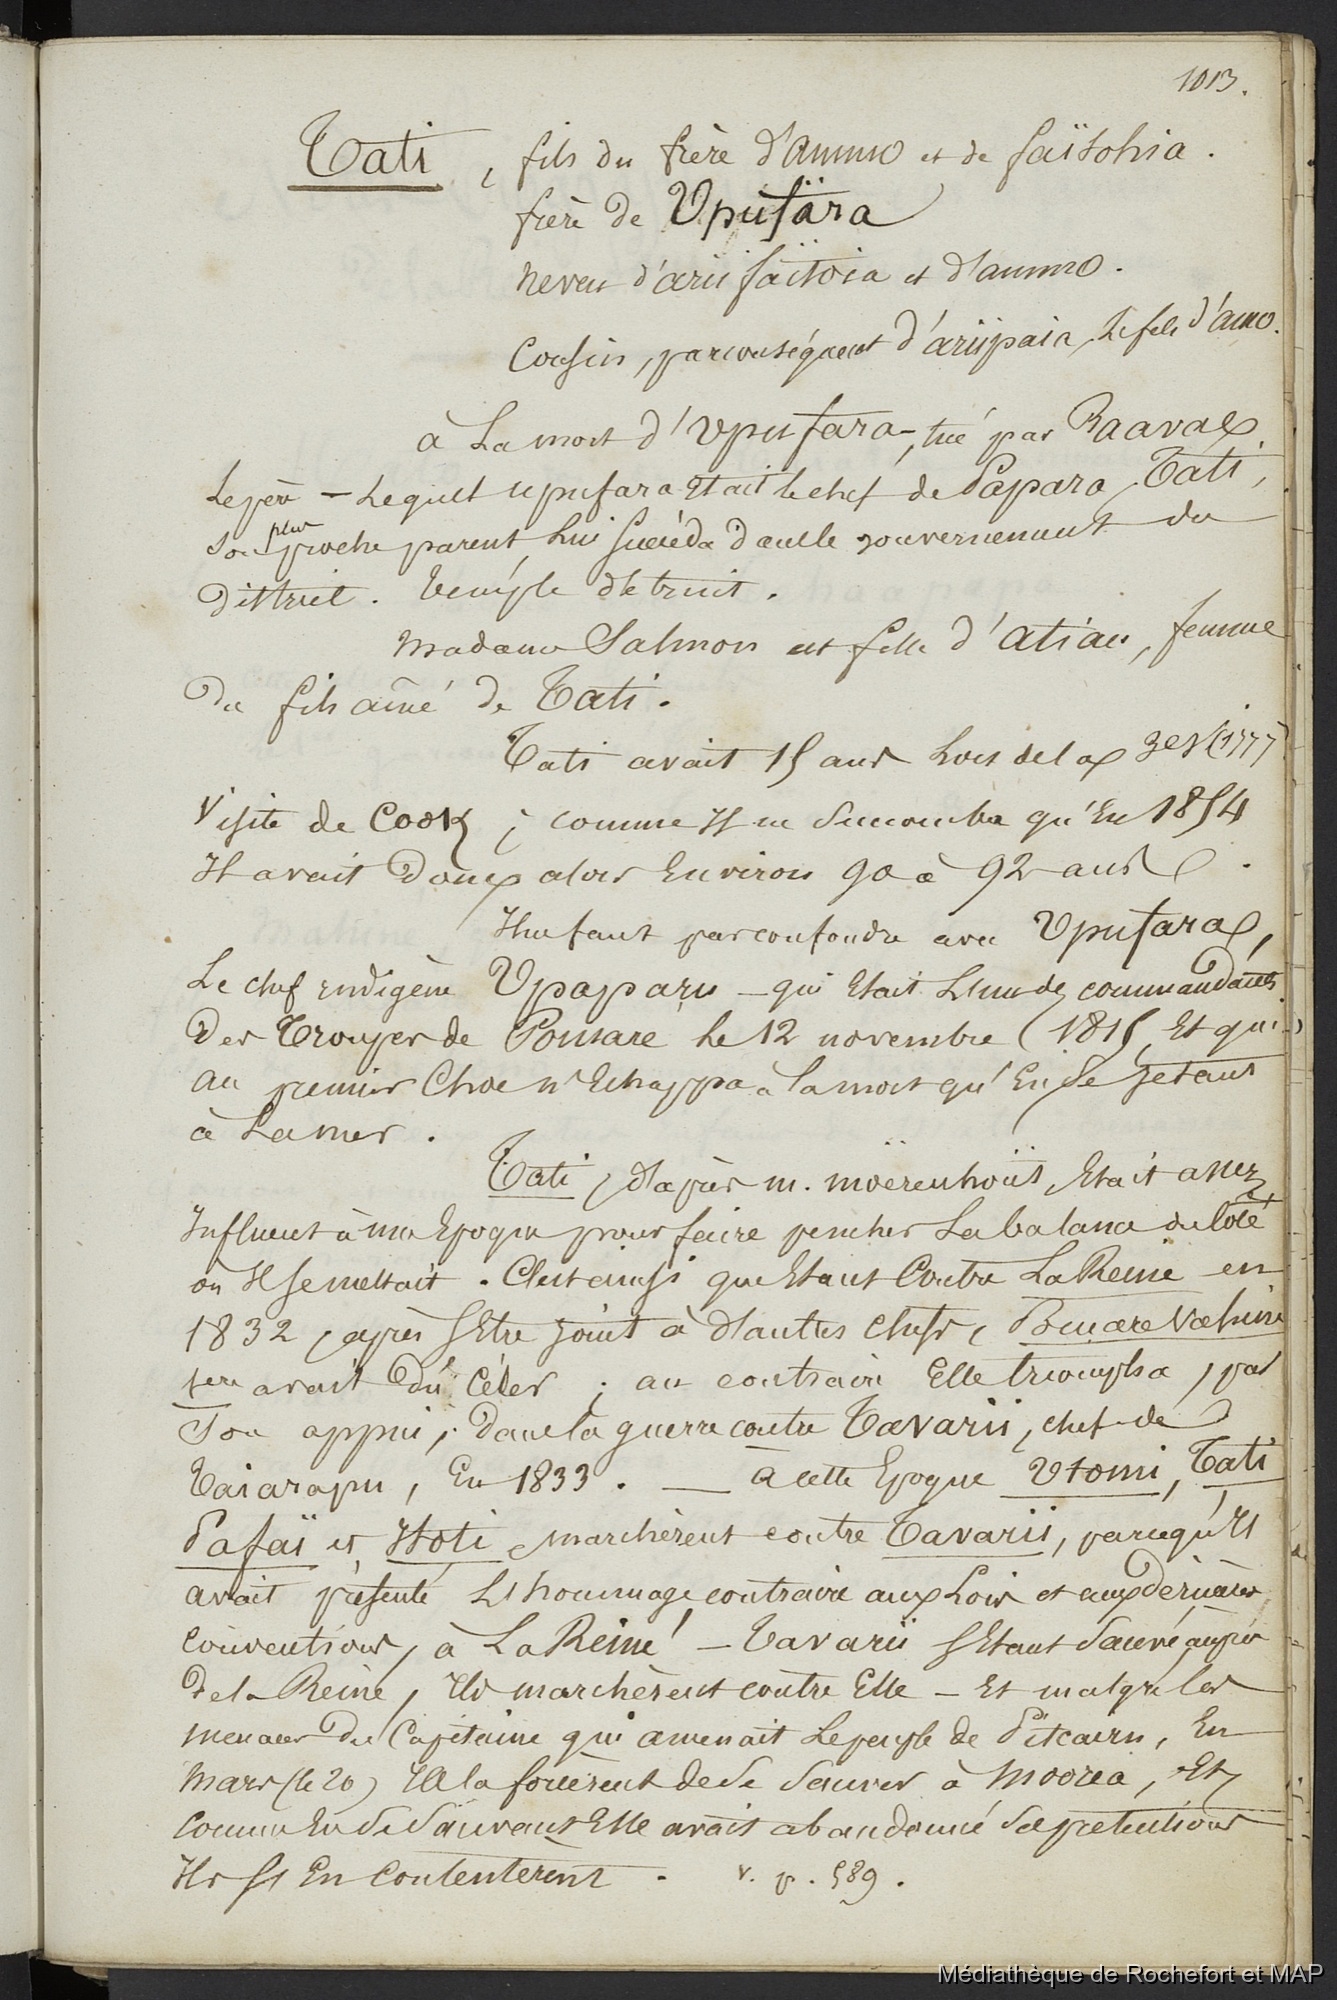 1013.
Tati, fils du frère d'ammo et de faïtohia.
frère de Upufära
neveu d'arii faïtoia et d'ammo.
Cousin, parconséquent d'ariipaia, le fils d'amo.
à La mort d'Upufara, tué par Raavae
Lepère — Lequel upufara Etait le chef de Papara, Tati,
son plus proche parent, Lui Succéda dans le gouvernement du
district. temple détruit.
Madame Salmon est fille d'Atiau, femme
du fils aîné de Tati.
Tati avait 15 ans Lors de la 3e V (1777)
Visite de Cook ; comme Il ne Succomba qu'En 1854
Il avait Donc alors Environ 90 à 92 ans.
Il ne faut pas confondre avec Upufara,
Le chef Indigène Upaparu — qui Etait L'un des commandants
Des Troupes de Pomaré le 12 novembre (1815, Et qui
au premier Choc n'Echappa à la mort qu'En se Jetant
à La mer.
Tati, d'après m. moërenhoüt, Etait assez
Influent à mon Epoque pour faire pencher La balance du Coté
où Il se mettait. C'est ainsi que Etant Contre La Reine en
1832, après s'Etre Joint à d'autres Chefs, Pomare Vahine
1ere avait Dû Céder ; au contraire Elle triompha, par
Son appui, Dans la guerre contre Tavarii, chef de
Taiarapu, En 1833. — à cette Epoque Utomi, Tati
Pafaï et Hoti marchèrent contre Tavarii, parcequ'Il
avait présenté L'hommage, contraire aux Lois et aux dernières
Conventions, à La Reine — Tavarii s'Etant Sauvé auprès
de la Reine, Ils marchèrent contre Elle — Et malgré les
menaces du Capitaine qui amenait Le peuple de Pitcairn, En
Mars (le 20) Ils la forcèrent de Se Sauver à Moorea, Et
Comme En Se Sauvant Elle avait abandonné Ses prétentions
Ils s'En Contentèrent. v. p. 589.
Médiathèque de Rochefort et MAP